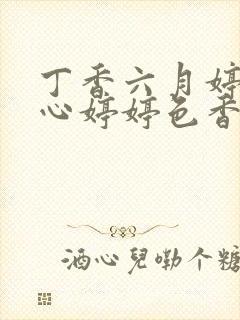 丁香六月婷
心婷婷色香
酒心兒嘞个糖